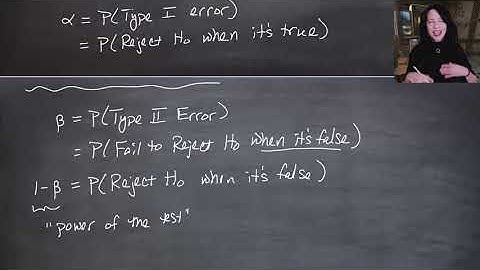 α = P(Type I error)
= P(Reject H₀ when it's true)
β = P(Type II Error)
= P(Fail to Reject H₀ when it's false)
1-β = P(Reject H₀ when it's false)
"power of the test"